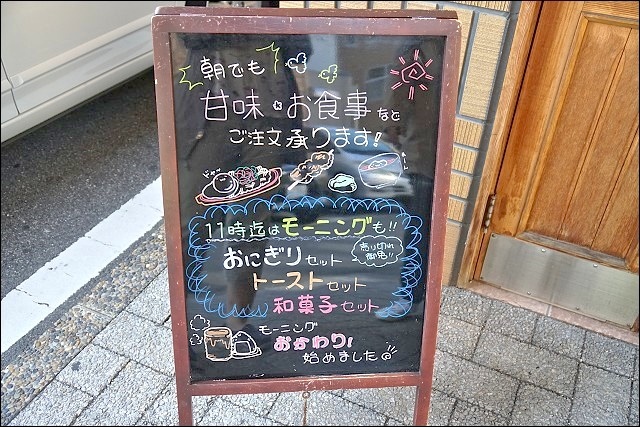 朝でも
甘味・お食事など
ご注文承ります!
11時迄はモーニングも!!
おにぎりセット
売り切れ御免!!
トーストセット
和菓子セット
モーニング
おかわり!
始めました